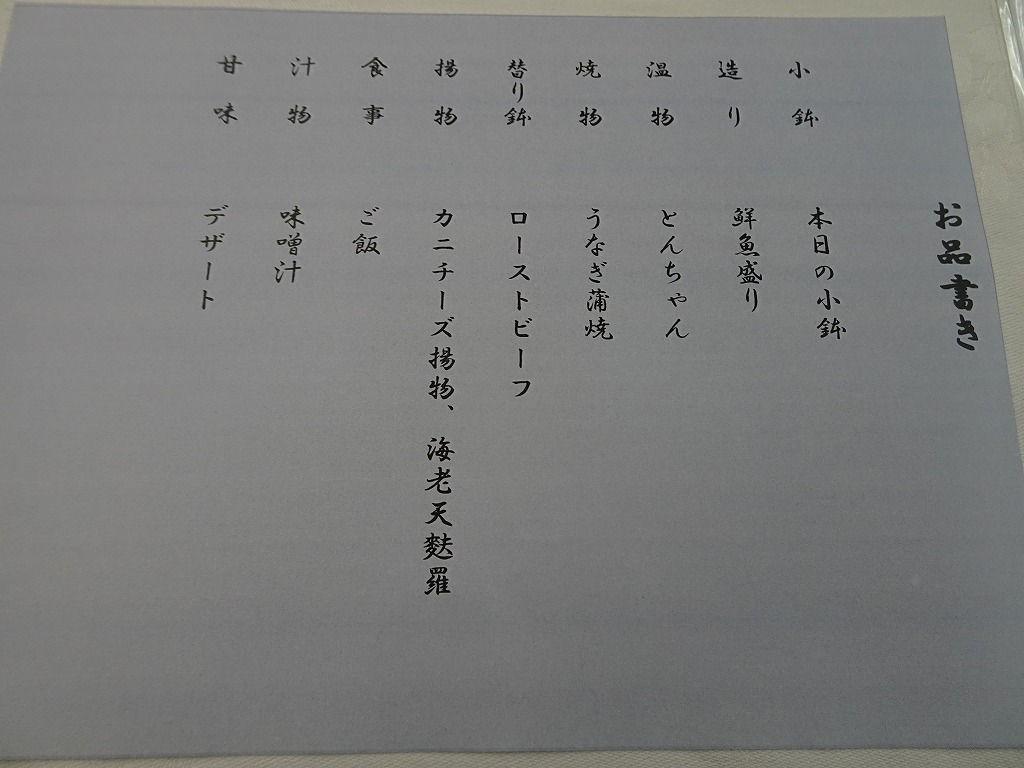 お品書き
小鉢 本日の小鉢
造り 鮮魚盛り
温物 とんちゃん
焼物 うなぎ蒲焼
替り鉢 ローストビーフ
揚物 カニチーズ揚物、海老天麩羅
食事 ご飯
汁物 味噌汁
甘味 デザート